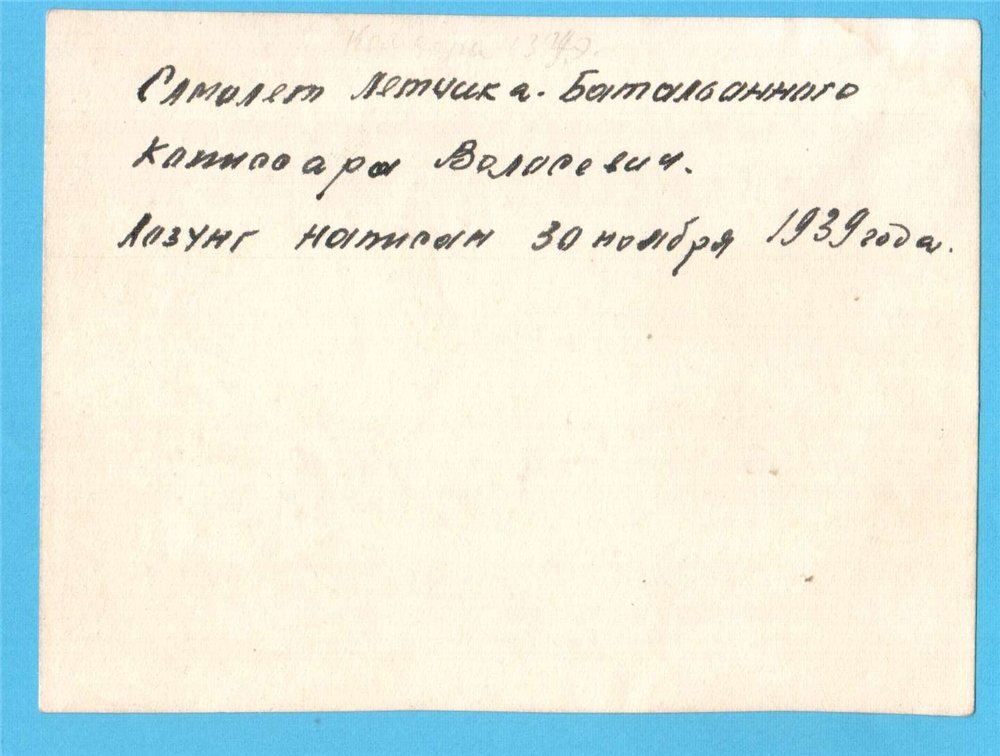 Самолет Летчика. Батальонного
Комиссара Волосевич.
Лозунг написан 30 ноября 1939 года.